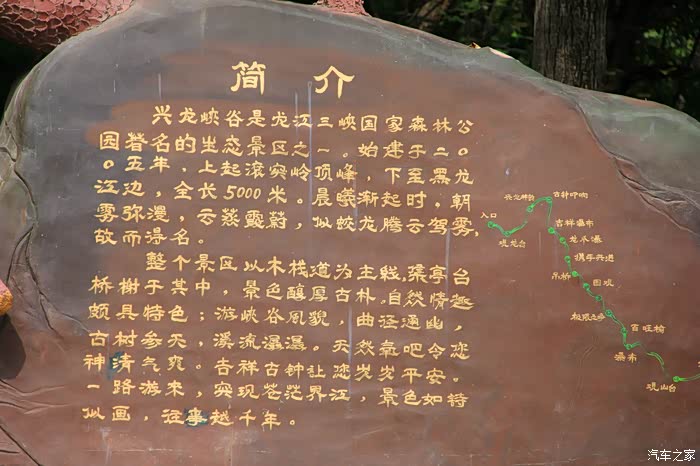 简 介
兴龙峡谷是龙江三峡国家森林公
园著名的生态景区之一。始建于二〇
〇五年，上起滚突岭顶峰，下至黑龙
江边，全长5000米。晨曦渐起时，朝
雾弥漫，云蒸霞蔚，似蛟龙腾云驾雾，
故而得名。
整个景区以木栈道为主线，亭台
桥榭于其中，景色醇厚古朴。自然情趣
颇具特色；游峡谷风貌，曲径通幽，
古树参天，溪流瀑瀑。天然氧吧令恋
神清气爽。吉祥古钟让恋岁岁平安。
一路游来，实现茫茫界江，景色如诗
似画，往事越千年。
入口
观龙台
古钟叩响
吉祥瀑布
龙爪瀑
携手共进
吊桥
百旺榆
瀑布
观山台
汽车之家